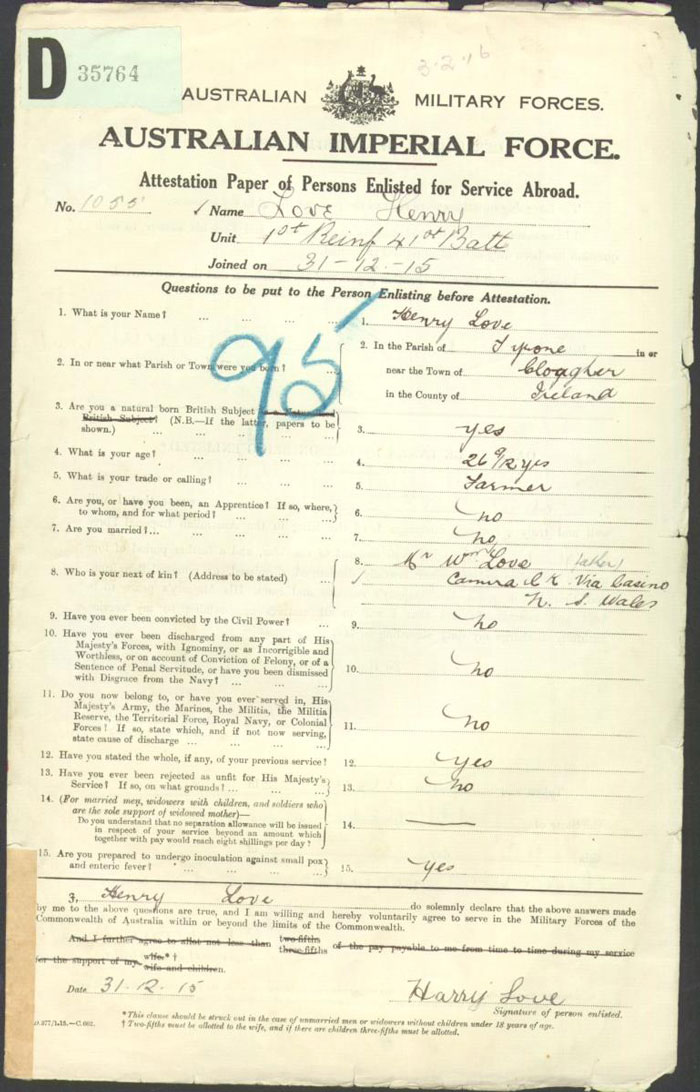 D 35764
3.2.16
AUSTRALIAN MILITARY FORCES.
AUSTRALIAN IMPERIAL FORCE.
Attestation Paper of Persons Enlisted for Service Abroad.
No. 1055 Name Love Henry
Unit 1st Reinf 41st Batt
Joined on 31-12-15
Questions to be put to the Person Enlisting before Attestation.
95
1. What is your Name? ... ... ... ... 1. Henry Love
2. In or near what Parish or Town were you born? ... 2. In the Parish of Tyrone in or
near the Town of Clogher
in the County of Ireland
3. Are you a natural born British Subject or a Naturalised
British Subject? (N.B.—If the latter, papers to be
shown.) ... ... ... ... 3. yes
4. What is your age? ... ... ... ... 4. 26 9/12 yrs
5. What is your trade or calling? ... ... ... 5. Farmer
6. Are you, or have you been, an Apprentice? If so, where,
to whom, and for what period? ... ... ... 6. no
7. Are you married?... ... ... ... ... 7. no
8. Who is your next of kin? (Address to be stated) ... 8. Mr Wm Love (father)
Camira Ck Via Casino
N. S. Wales
9. Have you ever been convicted by the Civil Power? ... 9. no
10. Have you ever been discharged from any part of His
Majesty's Forces, with Ignominy, or as Incorrigible and
Worthless, or on account of Conviction of Felony, or of a
Sentence of Penal Servitude, or have you been dismissed
with Disgrace from the Navy? ... ... ... 10. no
11. Do you now belong to, or have you ever served in, His
Majesty's Army, the Marines, the Militia, the Militia
Reserve, the Territorial Force, Royal Navy, or Colonial
Forces? If so, state which, and if not now serving,
state cause of discharge ... ... ... 11. no
12. Have you stated the whole, if any, of your previous service? 12. yes
13. Have you ever been rejected as unfit for His Majesty's
Service? If so, on what grounds? ... ... ... 13. no
14. (For married men, widowers with children, and soldiers who
are the sole support of widowed mother)—
Do you understand that no separation allowance will be issued
in respect of your service beyond an amount which
together with pay would reach eight shillings per day? 14. —
15. Are you prepared to undergo inoculation against small pox
and enteric fever? ... ... ... ... 15. yes
3, Henry Love do solemnly declare that the above answers made
by me to the above questions are true, and I am willing and hereby voluntarily agree to serve in the Military Forces of the
Commonwealth of Australia within or beyond the limits of the Commonwealth.
And I further agree to allot not less than two-fifths three-fifths of the pay payable to me from time to time during my service
for the support of my wife*† wife and children.
Date 31.12.15 Harry Love
Signature of person enlisted.
*This clause should be struck out in the case of unmarried men or widowers without children under 18 years of age.
† Two-fifths must be allotted to the wife, and if there are children three-fifths must be allotted.
D.377/1.15.—C.602.